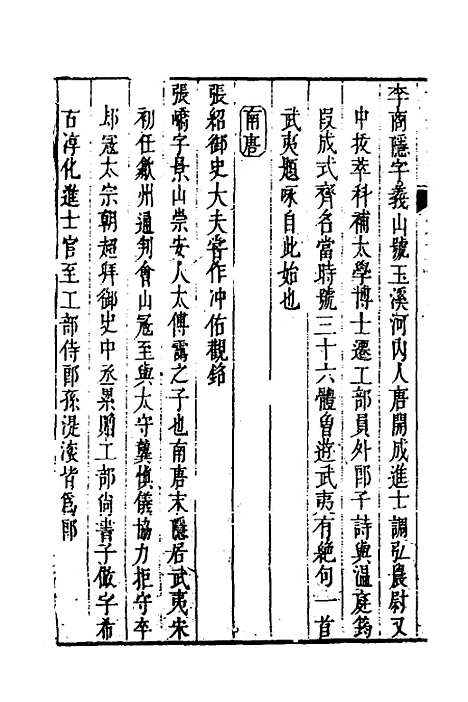 李商隱字義山號玉溪河內人唐開成進士調弘農尉又
中拔萃科補太學博士遷工部員外郎于詩與溫庭筠
段成式齊名當時號三十六體魯遊武夷有絕句一首
武夷題咏自此始也
南唐
張紹御史大夫嘗作冲佑觀銘
張嶠字景山崇安人太傅霭之子也南唐末隱居武夷宋
初任歙州通判會山冦至與太守龔慎儀協力拒守卒
却冦太宗朝超拜御史中丞累贈工部尚書子倣字希
古淳化進士官至工部侍郎孫湜湊皆爲郎